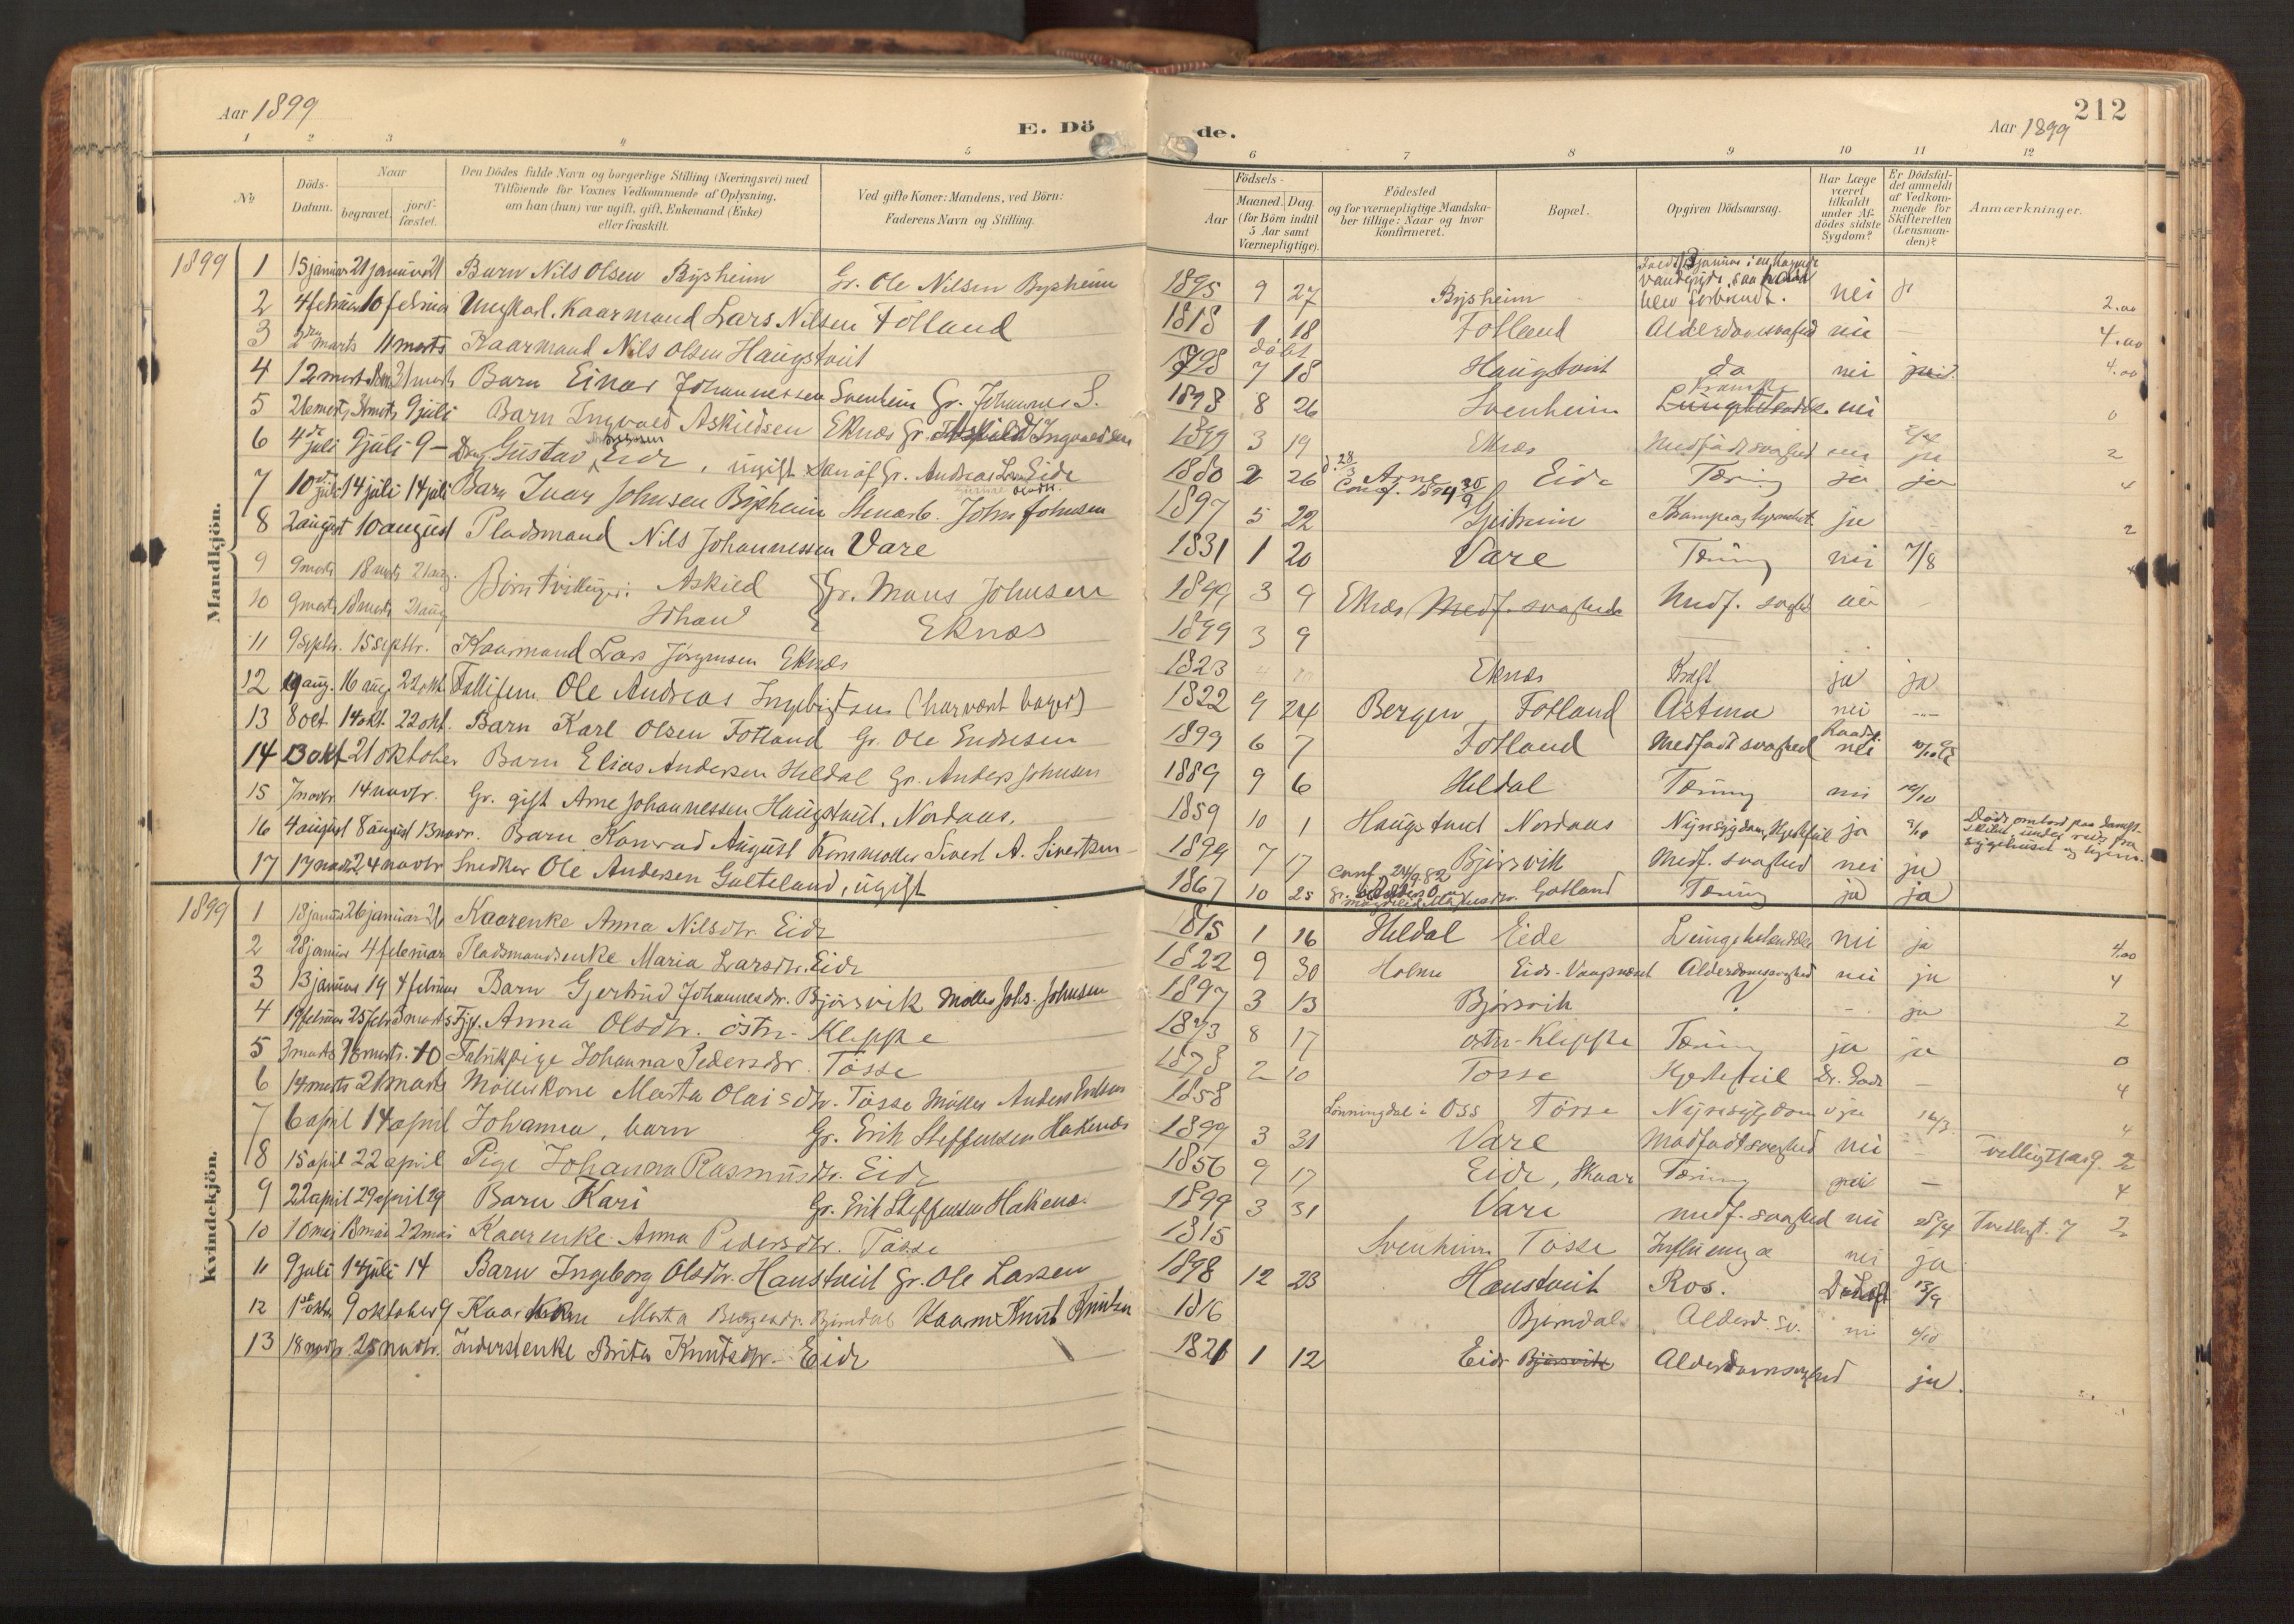 Aar 1899
E. Dö
de.
212
Aar 1899
1 2 3 4 5 6 7 8 9 10 11 12
No
Döds-
Datum.
Naar
begravet.
jord-
fæstet.
Den Dödes fulde Navn og borgerlige Stilling (Næringsvei) med
Tilföiende for Voxnes Vedkommende af Oplysning,
om han (hun) var ugift, gift, Enkemand (Enke)
eller fraskilt.
Ved gifte Koner: Mandens, ved Börn:
Faderens Navn og Stilling.
Födsels-
Aar
Maaned. Dag.
(for Börn indtil
5 Aar samt
Værnepligtige).
Födested
og for værnepligtige Mandska-
ber tillige: Naar og hvor
konfirmeret.
Bopæl.
Opgiven Dödsaarsag.
Har Læge
været
tilkaldt
under Af-
dödes sidste
Sygdom?
Er Dödsfal-
det anmeldt
af Vedkom-
mende for
Skifteretten
(Lensman-
den)?
Anmærkninger.
Mandkjön.
1899 1 15 januar 21 januar 21 Barn Nils Olsen Bysheim Gr. Ole Nilsen Bysheim 1895 9 27 Bysheim nei ja 2.00
2 4 februar 10 februar Ungkarl. Kaarmand Lars Nilsen Fotland 1818 1 18 Fotland Alderdomssvaghed nei 4.00
3 marts 11 marts Kaarmand Nils Olsen Haugstveit 1798 döbt 7 18 Haugstveit do nei 4.00
4 12 marts 31 marts Barn Einar Johannessen Svenheim Gr. Johannes S. 1898 8 26 Svenheim Krampe nei 0
5 26 marts 31 marts 9 juli Barn Ingvald Askildsen Eknæs Gr. Askild Ingvaldsen 1899 3 19 Eknæs Medfødt svaghed nei ja 2
6 4de juli 9 juli 9 - Gustav Eide, ugift Søn af Gr. Andreas Eide 1880 2 26 Arne Conf. 1894 30/9 Eide Tæring ja ja 4
7 10de juli 14 juli 14 juli Barn Ivar Johnsen Bysheim Stenarb. John Johnsen 1897 5 22 Gjeitheim ja 2
8 2 august 10 august Pladsmand Nils Johannessen Vare 1831 1 20 Vare Tæring nei 7/8
9 9 marts 18 marts 21 aug. Börn Tvillinger: Askild Gr. Mons Johnsen 1899 3 9 Eknæs Medf. svaghed nei
10 9 marts 18 marts 21 aug Johan Eknæs 1899 3 9
11 9 septbr. 15 septbr. Kaarmand Lars Jörgensen Eknæs 1823 Eknæs Kræft ja ja
12 10 aug. 16 aug. 22 okt. Fattiglem Ole Andreas Ingebrigtsen (har vært bager) 1822 9 24 Bergen Fotland Astma nei
13 8 oct. 14 okt. 22 okt. Barn Karl Olsen Fotland Gr. Ole Endresen 1899 6 7 Fotland Medfødt svaghed nei
14 13 okt 21 oktober Barn Elias Andersen Heldal Gr. Anders Johnsen 1889 9 6 Heldal Tæring nei
15 7 novbr. 14 novbr. Gr. gift Arne Johannessen Haugstveit, Nordaas. 1859 10 1 Haugstveit Nordaas Nyresygdom, Hjertefeil ja Döde ombord paa Damp-
skibet under reise fra
sygehuset og hjem.
16 4 august 8 august 13 novbr. Barn Konrad August Kornmøller Sivert A. Sivertsen 1899 7 17 Bjørsvik Medf. svaghed nei ja
17 17 novbr 24 novbr Snedker Ole Andersen Galteland, ugift 1867 10 25 Conf. 24/9 82 Gotland Tæring ja ja
Kvindekjön.
1899 1 18 januar 26 januar 26 Kaarenke Anna Nilsdtr. Eide 1815 1 16 Heldal Eide Lungebetændelse nei ja 4.00
2 28 januar 4 februar Pladsmandsenke Maria Larsdtr. Eide 1822 9 30 Holme Eide - Vaagenæset Alderdomssvaghed nei ja 4
3 13 januar 19 4 februar Barn Gjertrud Johannesdtr. Bjørsvik Møller Johs. Johnsen 1897 3 13 Bjørsvik ? ja 2
4 19 februar 25 febr 3 marts Pige. Anna Olsdtr. östre Kleppe 1873 8 17 östre Kleppe Tæring ja ja 0
5 3 marts 10 marts. 10 Fabrikpige Johanna Pedersdtr. Tösse 1878 2 10 Tösse Hjertefeil 4
6 14 marts 21 marts Møllerkone Marta Olaisdtr. Tösse Møller Anders Endresen 1858 Lønningdal i Oss Tösse Nyresygdom ja 14/3 4
7 6 april 14 april Johanna, barn Gr. Erik Steffensen Hakenæs 1899 3 31 Vare Medfødt svaghed nei Tvillingpar 9. 2
8 15 april 22 april Pige Johanna Rasmusdtr. Eide 1856 9 17 Eide, Skaar Tæring nei 4
9 22 april 29 april 29 Barn Kari Gr. Erik Steffensen Hakenæs. 1899 3 31 Vare medf. svaghed nei 28/4 Tvillingp. 7 2
10 10 mai 18 mai 22 mai Kaarenke Anna Pedersdtr. Tösse 1815 Svenheim Tösse Influenza nei ja
11 9 juli 14 juli 14 Barn Ingeborg Olsdtr. Haustveit Gr. Ole Larsen 1898 12 23 Haustveit Ros.
12 1ste oktbr 9 oktober 9 Kaarkone Marta Bjørndal Kaarm Knut Knutsen 1816 Bjørndal Alderd. sv. nei
13 18 novbr 25 novbr. Inderstenke Brita Knutsdtr. - Eide 1821 1 12 Eide Bjørsvik Alderdomssvaghed ja.